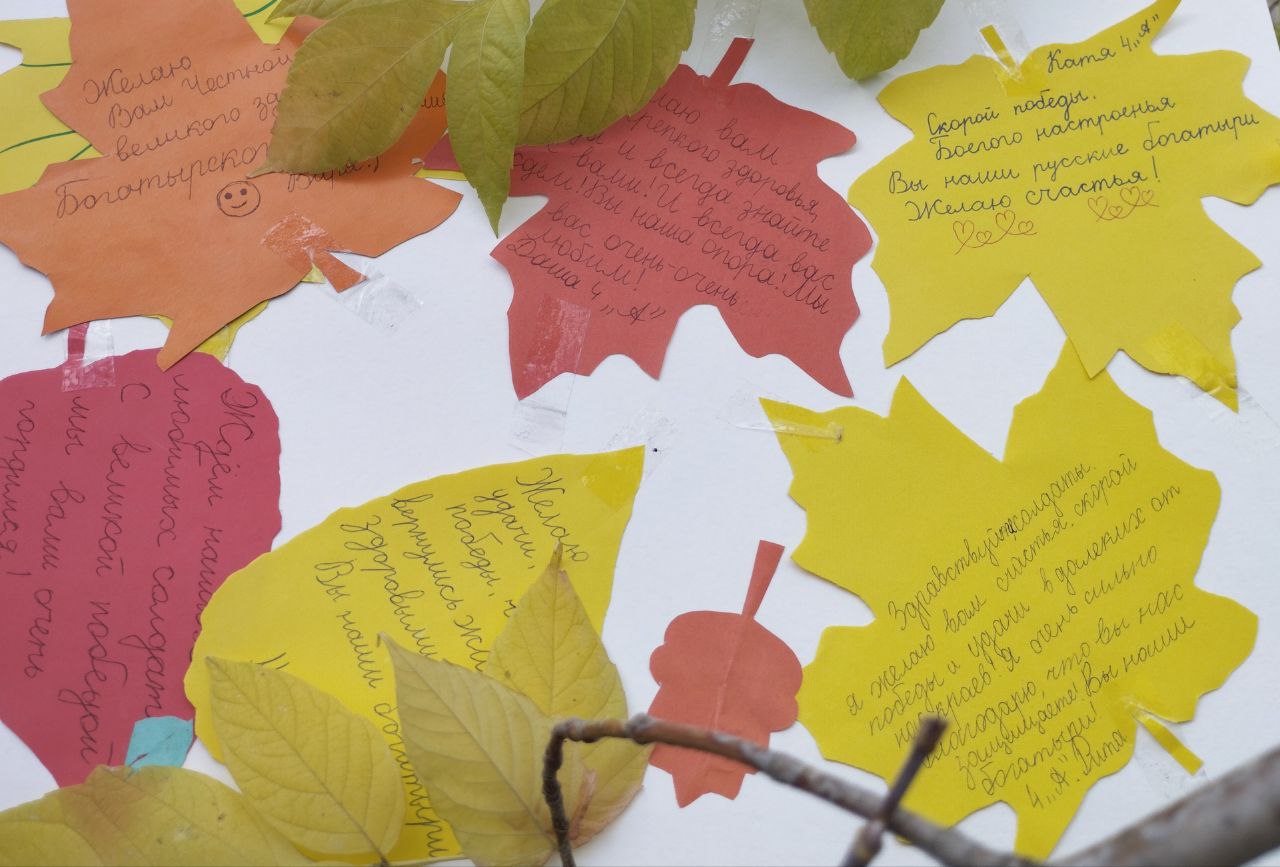 Желаю
Вам Честной
великого
Богатырского
Варя:)
вам
крепкого здоровья,
и всегда знайте
вами! И всегда вас
Вы наша опора! Мы
вас очень-очень
любим!
Даша 4 „А”
Катя 4 „А”
Скорой победы.
Боевого настроенья
Вы наши русские богатыри
Желаю счастья!
Ждём наших
любимых солдат
с великой победой
мы вами очень
гордимся!
Желаю
удачи,
победы,
вернулись
здоровыми
Вы наши богатыри
Здравствуйте солдаты.
я желаю вам счастья. скорой
победы и удачи в далеких от
нас краев! Я очень сильно
благодарю, что вы нас
защищаете! Вы наши
богатыри!
4 „А” Рита